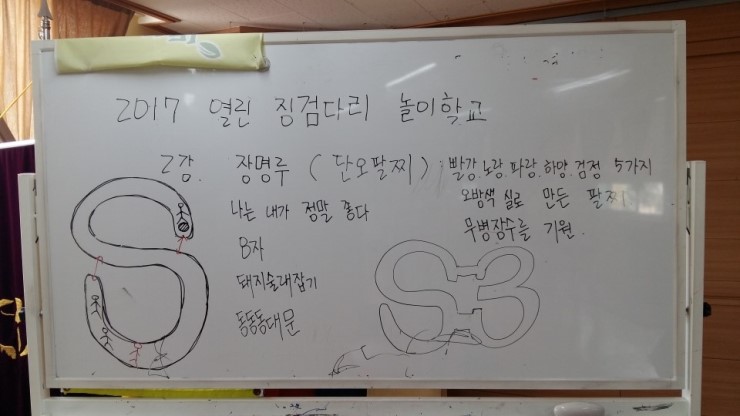 2017 열린 징검다리 놀이학교
2강. 장명루 (단오팔찌) : 빨강.노랑.파랑.하양.검정 5가지
오방색 실로 만든 팔찌.
무병장수를 기원.
나는 내가 정말 좋다
8자
돼지술래잡기
동동동대문